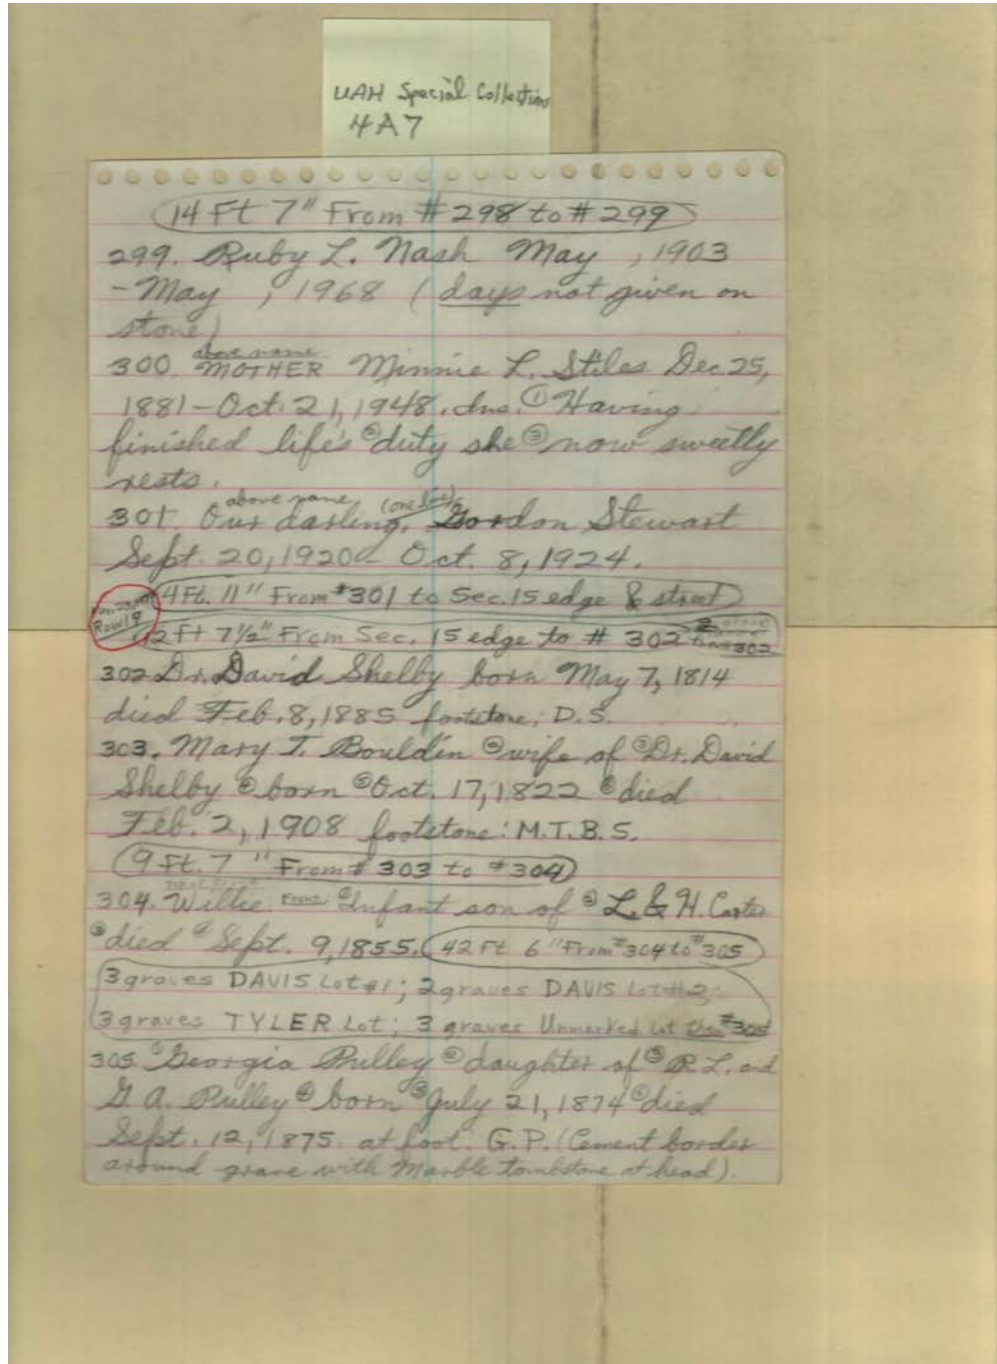 UAH Special Collections
4A7
14 Ft 7" From #298 to #299
299. Ruby L. Nash May , 1903
- May , 1968 (days not given on
stone)
above name
300. MOTHER Minnie L. Stiles Dec 25,
1881 - Oct. 21, 1948. Ins. ① Having
finished life's ② duty she ③ now sweetly
rests.
above name (one line)
301. Our darling, Gordon Stewart
Sept. 20, 1920 - Oct. 8, 1924.
4 Ft. 11" From #301 to Sec. 15 edge & street
Row 19
12 Ft 7½" From Sec. 15 edge to # 302 2 302
302 Dr. David Shelby born May 7, 1814
died Feb. 8, 1885 footstone: D.S.
303. Mary T. Bouldin ② wife of ③ Dr. David
Shelby ④ born ⑤ Oct. 17, 1822 ⑥ died
Feb. 2, 1908 footstone: M.T.B.S.
9 Ft. 7" From # 303 to #304
304. Willie Front: ① Infant son of ② L. & H. Carter
③ died ④ Sept. 9, 1855. 42 Ft 6" From #304 to #305
3 graves DAVIS Lot #1; 2 graves DAVIS Lot #2;
3 graves TYLER Lot; 3 graves Unmarked Lot then #305
305 ① Georgia Pulley ② daughter of ③ R.L. and
G.A. Pulley ④ born ⑤ July 21, 1874 ⑥ died
Sept. 12, 1875. at foot. G.P. (Cement border
around grave with Marble tombstone at head).